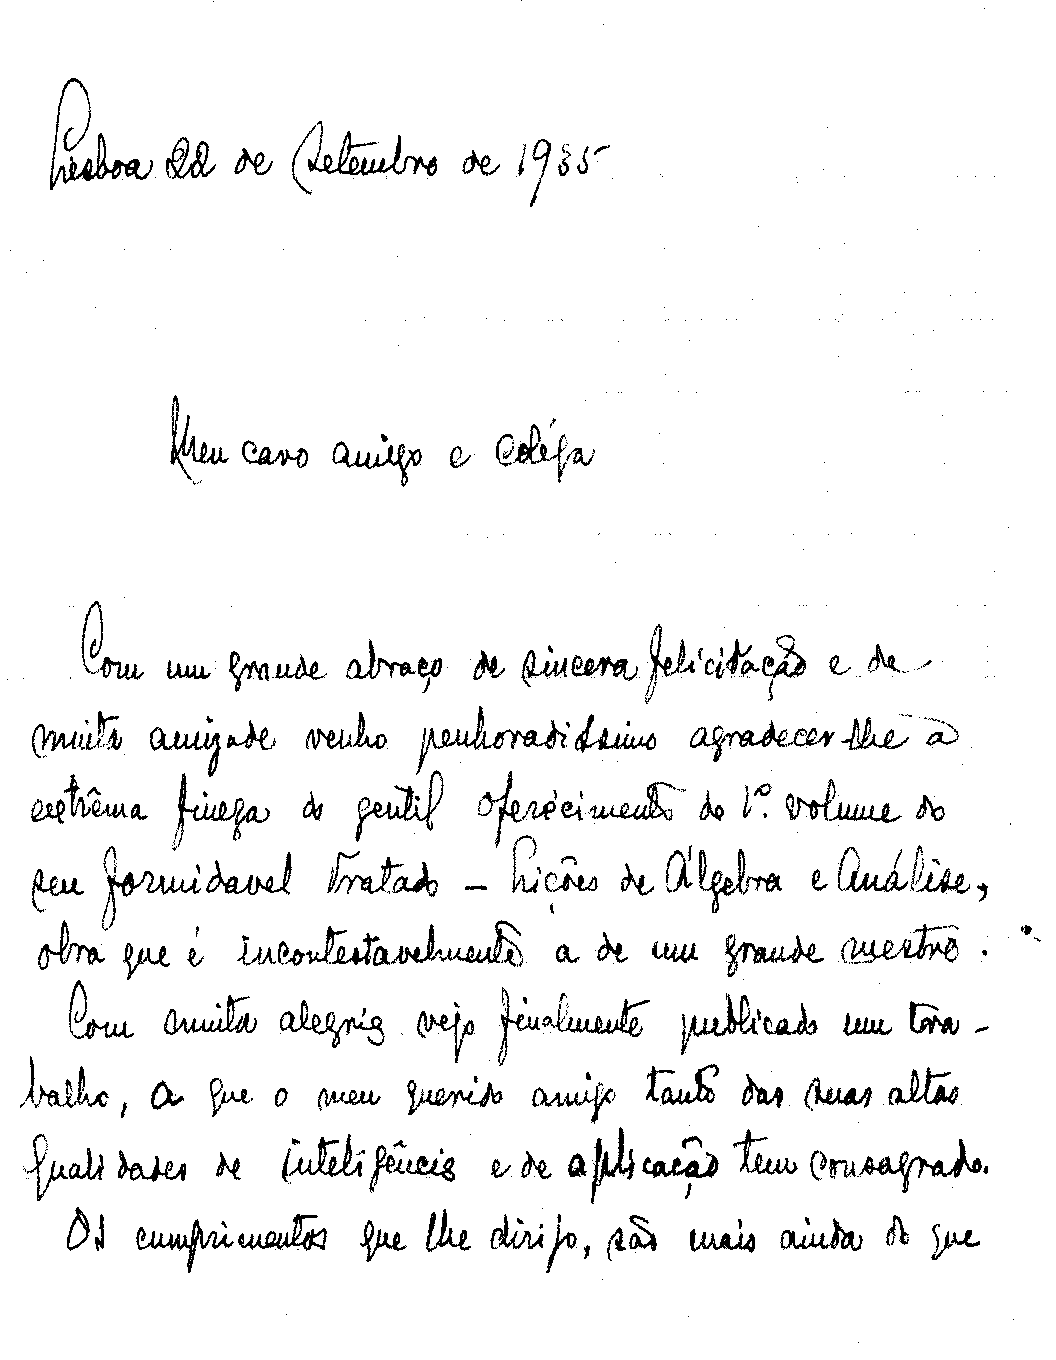 Lisboa 22 de Setembro de 1935
Meu caro amigo e coléga
Com um grande abraço de sincera felicitação e de
muita amizade venho penhoradissimo agradecer-lhe a
extrêma fineza do gentil oferécimento do 1º. volume do
seu formidavel tratado – Lições de Álgebra e Análise,
obra que é incontestavelmente a de um grande mestre.
Com muita alegria vejo finalmente publicado um tra-
balho, a que o meu querido amigo tanto das suas altas
qualidades de inteligência e de aplicação tem consagrado.
Os cumprimentos que lhe dirijo, são mais ainda do que